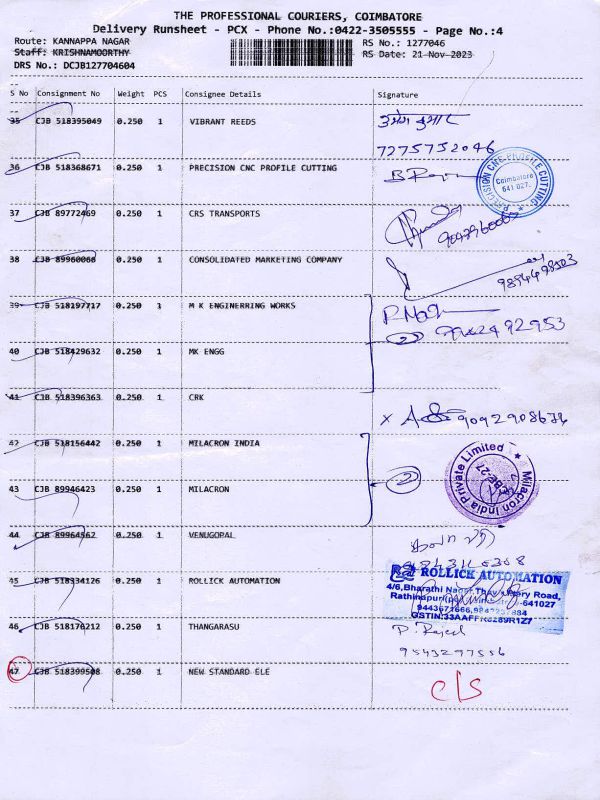 THE PROFESSIONAL COURIERS, COIMBATORE
Delivery Runsheet - PCX - Phone No.:0422-3505555 - Page No.:4
Route: KANNAPPA NAGAR RS No.: 1277046
Staff: KRISHNAMOORTHY RS Date: 21 Nov 2023
DRS No.: DCJB127704604
S No Consignment No Weight PCS Consignee Details Signature
35 CJB 518395049 0.250 1 VIBRANT REEDS
7275752046
36 CJB 518368671 0.250 1 PRECISION CNC PROFILE CUTTING
PRECISION CNC PROFILE CUTTING
Coimbatore
641 027.
37 CJB 89772469 0.250 1 CRS TRANSPORTS
38 CJB 89960068 0.250 1 CONSOLIDATED MARKETING COMPANY
9894498503
39 CJB 518197717 0.250 1 M K ENGINERRING WORKS
2
40 CJB 518429632 0.250 1 MK ENGG
41 CJB 518396363 0.250 1 CRK
x
42 CJB 518156442 0.250 1 MILACRON INDIA
Milacron India Private Limited
2
43 CJB 89946423 0.250 1 MILACRON
44 CJB 89964562 0.250 1 VENUGOPAL
45 CJB 518334126 0.250 1 ROLLICK AUTOMATION
ROLLICK AUTOMATION
4/6, Bharathi Nagar, Road,
-641027
46 CJB 518170212 0.250 1 THANGARASU
P. Rajesh
9543297556
47 CJB 518399508 0.250 1 NEW STANDARD ELE
c/s